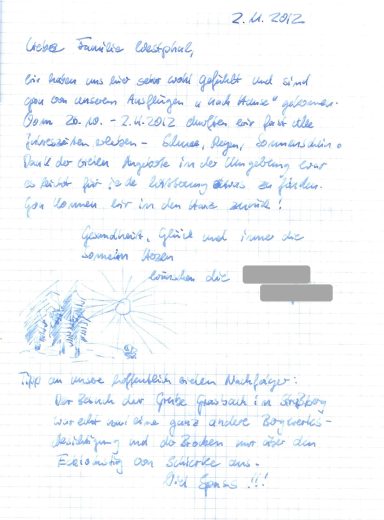 2.11.2012
Liebe Familie Westphal,
wir haben uns hier sehr wohl gefühlt und sind
gern von unseren Ausflügen "nach Hause" gekommen.
Vom 20.10. - 2.11.2012 durften wir fast alle
Jahreszeiten erleben - Schnee, Regen, Sonnenschein.
Dank der vielen Angebote in der Umgebung war
es leicht für jede Witterung etwas zu finden.
Gern kommen wir in den Harz zurück!
Gesundheit, Glück und immer die
Sonne im Herzen
wünschen die
Tipp an unsere hoffentlich vielen Nachfolger:
Der Besuch der Grube Glasebach in Straßberg
war echt mal eine ganz andere Bergwerks-
besichtigung und der Brocken mal über den
von Schierke aus.
Viel Spass!!!